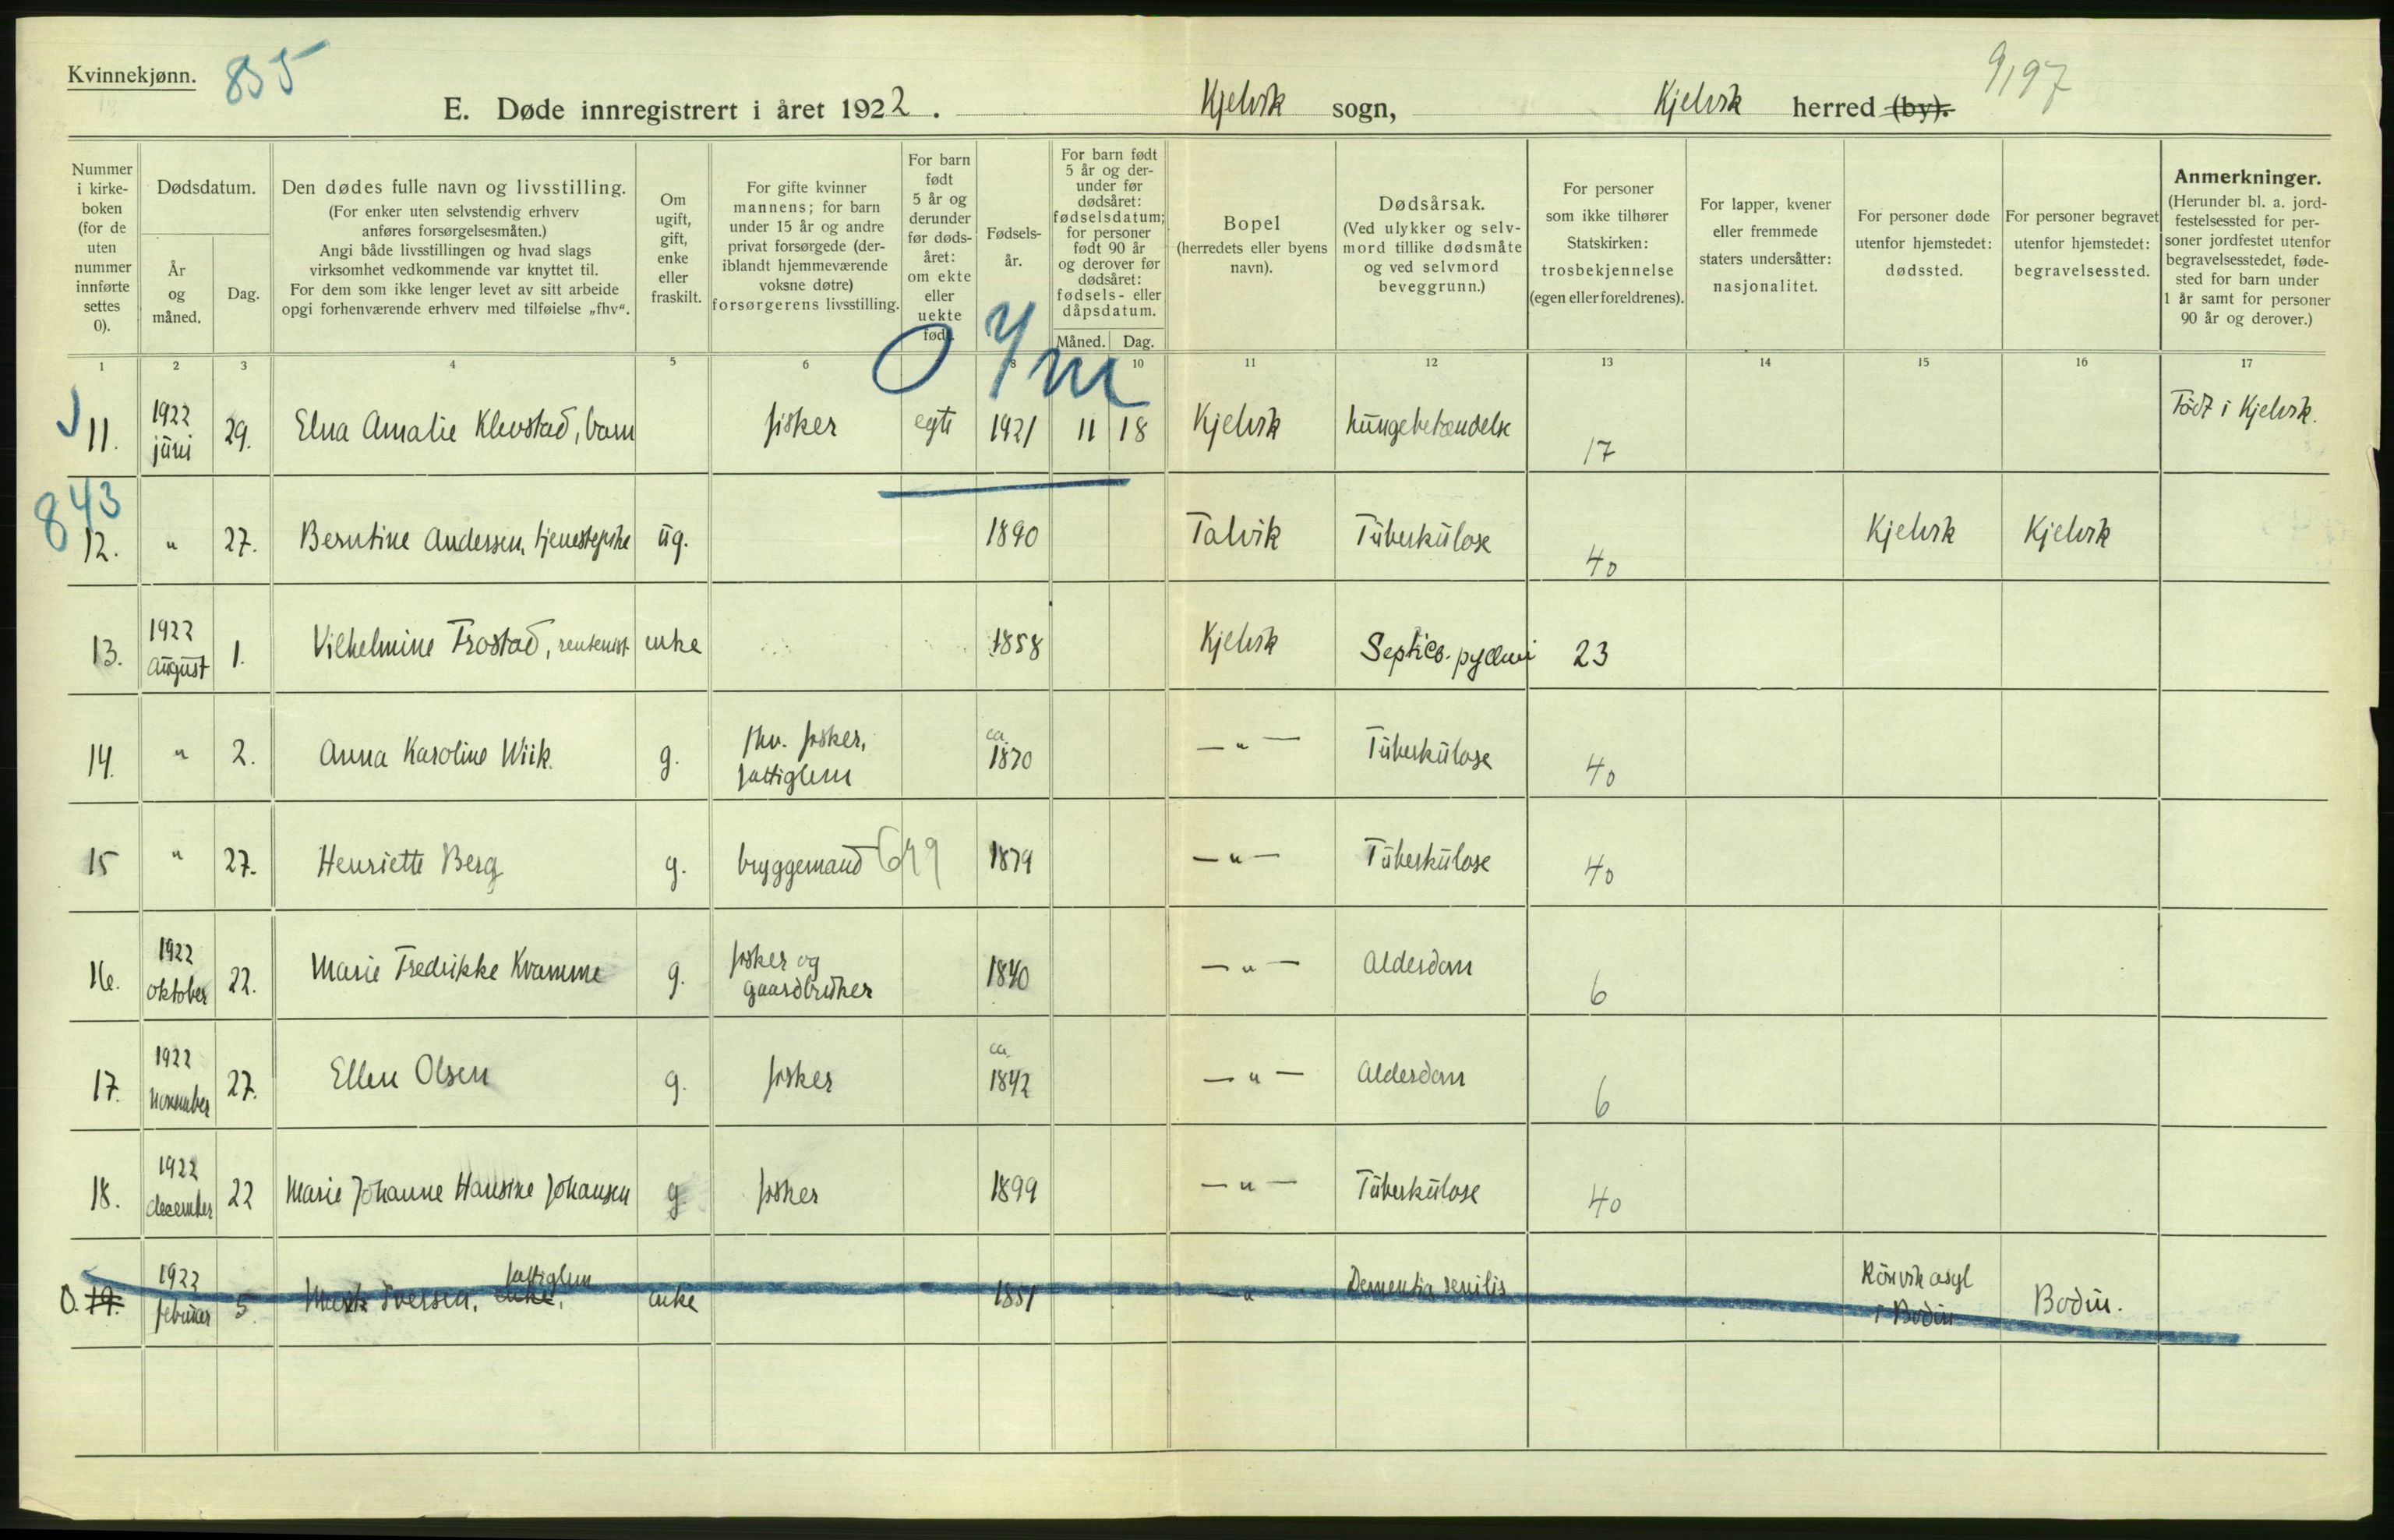 Kvinnekjønn.
855
9197
E. Døde innregistrert i året 1922. Kjelvik sogn, Kjelvik herred (by).
Nummer i kirkeboken (for de uten nummer innførte settes 0).
Dødsdatum.
År og måned.
Dag.
Den dødes fulle navn og livsstilling.
(For enker uten selvstendig erhverv anføres forsørgelsesmåten.)
Angi både livsstillingen og hvad slags virksomhet vedkommende var knyttet til.
For dem som ikke lenger levet av sitt arbeide opgi forhenværende erhverv med tilføielse „fhv“.
Om ugift, gift, enke eller fraskilt.
For gifte kvinner mannens; for barn under 15 år og andre privat forsørgede (deriblandt hjemmeværende voksne døtre) forsørgerens livsstilling.
For barn født 5 år og derunder før dødsåret: om ekte eller uekte født.
Fødselsår.
For barn født 5 år og derunder før dødsåret: fødselsdatum; for personer født 90 år og derover før dødsåret: fødsels- eller dåpsdatum.
Måned. Dag.
Bopel (herredets eller byens navn).
Dødsårsak. (Ved ulykker og selvmord tillike dødsmåte og ved selvmord beveggrunn.)
For personer som ikke tilhører Statskirken: trosbekjennelse (egen eller foreldrenes).
For lapper, kvener eller fremmede staters undersåtter: nasjonalitet.
For personer døde utenfor hjemstedet: dødssted.
For personer begravet utenfor hjemstedet: begravelsessted.
Anmerkninger. (Herunder bl. a. jordfestelsessted for personer jordfestet utenfor begravelsesstedet, fødested for barn under 1 år samt for personer 90 år og derover.)
1 2 3 4 5 6 8 10 11 12 13 14 15 16 17
11. 1922 juni 29. Elna Amalie Klevstad, barn fisker egte 1921 11 18 Kjelvik Lungebetændelse 17 Født i Kjelvik.
843
12. " 27. Berntine Andersen, tjenestepike ug. 1890 Talvik Tuberkulose 40 Kjelvik Kjelvik
13. 1922 august 1. Vilhelmine Frostad, rentenist enke 1858 Kjelvik Septico-pyæmi 23
14. " 2. Anna Karoline Wiik. g. fhv. fisker, fattiglem ca. 1870 — " — Tuberkulose 40
15 " 27. Henriette Berg g. bryggemand 649 1879 — " — Tuberkulose 40
16. 1922 oktober 22. Marie Fredrikke Kvamme g. fisker og gaardbruker 1840 — " — Alderdom 6
17. 1922 november 27. Ellen Olsen g. fisker ca. 1842 — " — Alderdom 6
18. 1922 december 22 Marie Johanne Hansine Johansen g. fisker 1899 — " — Tuberkulose 40
0. 19. 1922 februar 5. Iversen, enke, fattiglem enke 1851 — " Dementia senilis Rönvik asyl i Bodin Bodin.